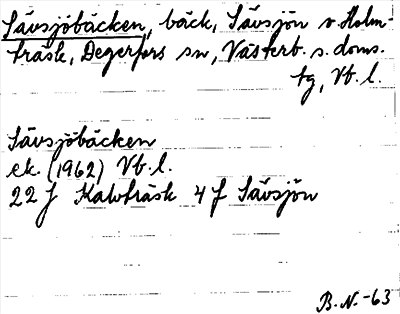 Sävsjöbäcken, bäck, Sävsjön v. Holm-
träsk, Degerfors sn, Västerb. s. doms.
tg, Vb. l.
Sävsjöbäcken
ek. (1962) Vb. l.
22 J Kalvträsk 4 f Sävsjön
B. N. -63